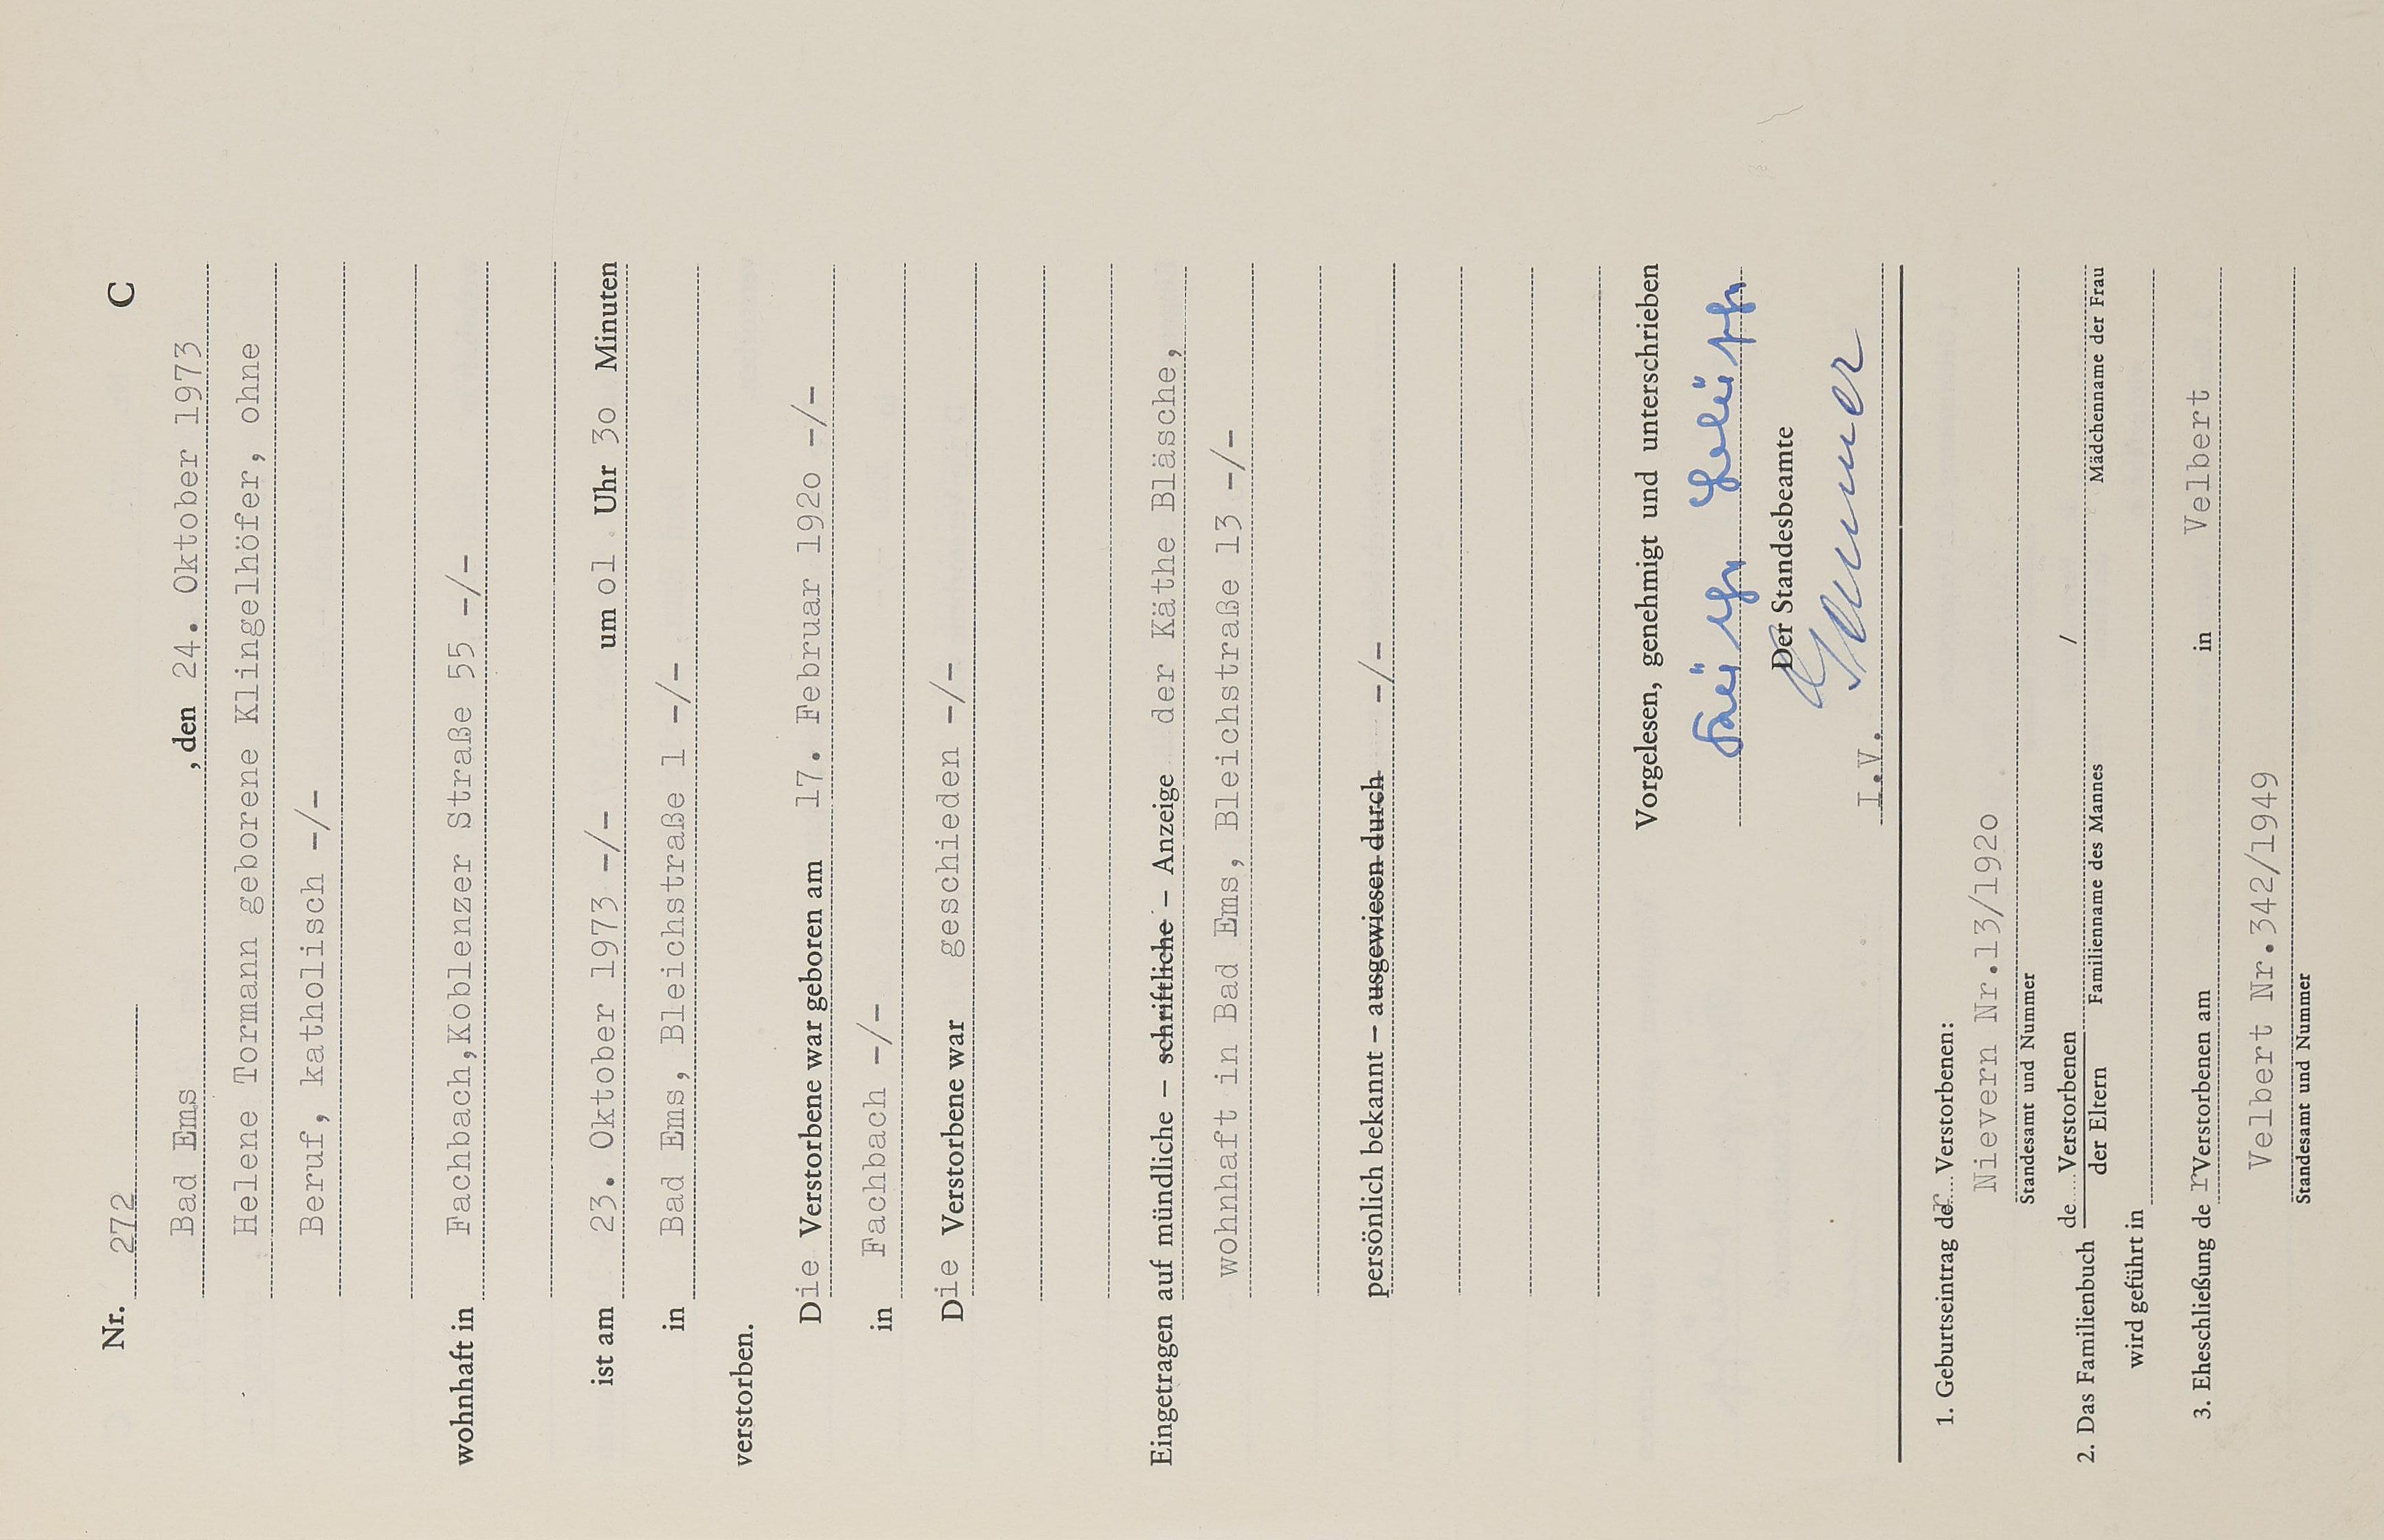 Nr. 272 C
Bad Ems , den 24. Oktober 1973
Helene Tormann geborene Klingelhöfer, ohne
Beruf, katholisch -/-
wohnhaft in Fachbach,Koblenzer Straße 55 -/-
ist am 23. Oktober 1973 -/- um o1 Uhr 3o Minuten
in Bad Ems, Bleichstraße 1 -/-
verstorben.
Die Verstorbene war geboren am 17. Februar 192o -/-
in Fachbach -/-
Die Verstorbene war geschieden -/-
Eingetragen auf mündliche – schriftliche – Anzeige der Käthe Bläsche,
wohnhaft in Bad Ems, Bleichstraße 13 -/-
persönlich bekannt – ausgewiesen durch -/-
Vorgelesen, genehmigt und unterschrieben
Der Standesbeamte
I.V.
1. Geburtseintrag der Verstorbenen:
Nievern Nr.13/192o
Standesamt und Nummer
2. Das Familienbuch de Verstorbenen /
der Eltern Familienname des Mannes Mädchenname der Frau
wird geführt in
3. Eheschließung der Verstorbenen am in Velbert
Velbert Nr.342/1949
Standesamt und Nummer